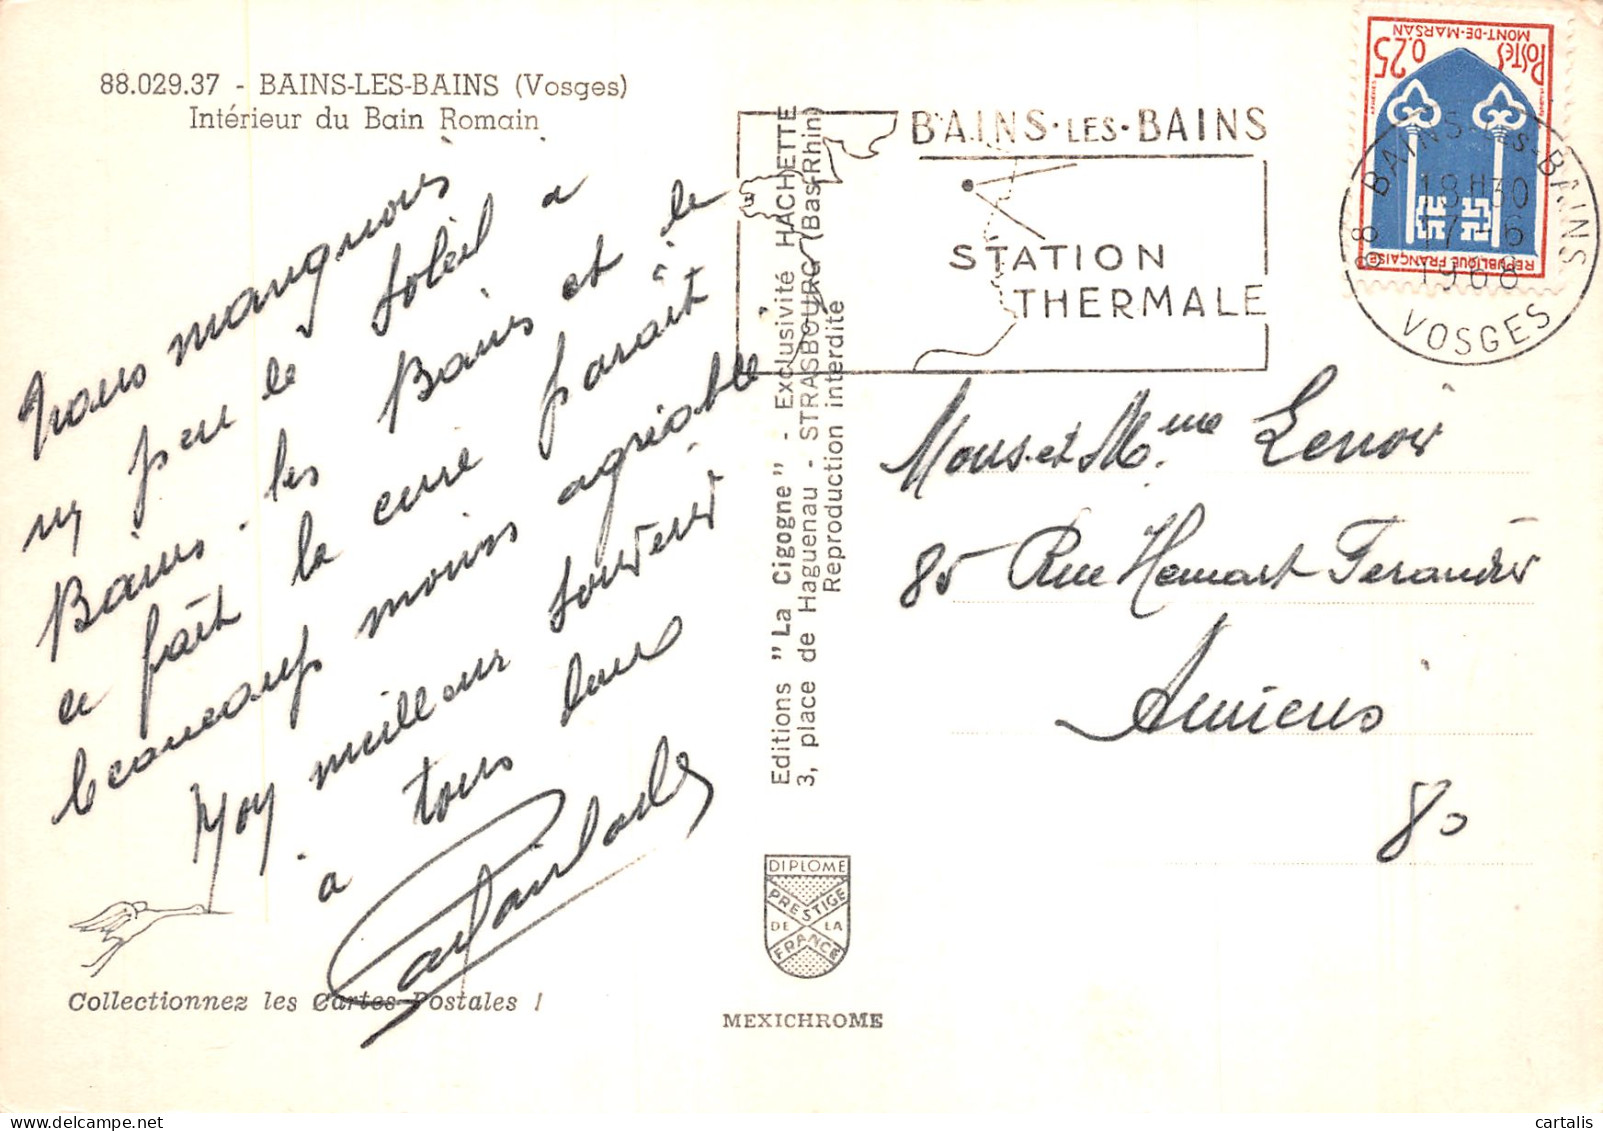 88.029.37 - BAINS-LES-BAINS (Vosges)
Intérieur du Bain Romain
nous manquions
un peu le soleil a
Bains-les Bains et le
fait la cure paraît
beaucoup moins agréable
Moy meilleur souvenir
a tous deux
Collectionnez les Cartes Postales !
Editions "La Cigogne" - Exclusivité HACHETTE
3, place de Haguenau - STRASBOURG (Bas-Rhin)
Reproduction interdite
DIPLOME
PRESTIGE
DE LA
FRANCE
MEXICHROME
BAINS·LES·BAINS
STATION
THERMALE
POSTES 0,25
MONT-DE-MARSAN
REPUBLIQUE FRANÇAISE
88 BAINS-LES-BAINS
18H30
17-6
1968
VOSGES
Mons. et Mme Lenoir
85 Rue Hemart
Amiens
80
cartalis